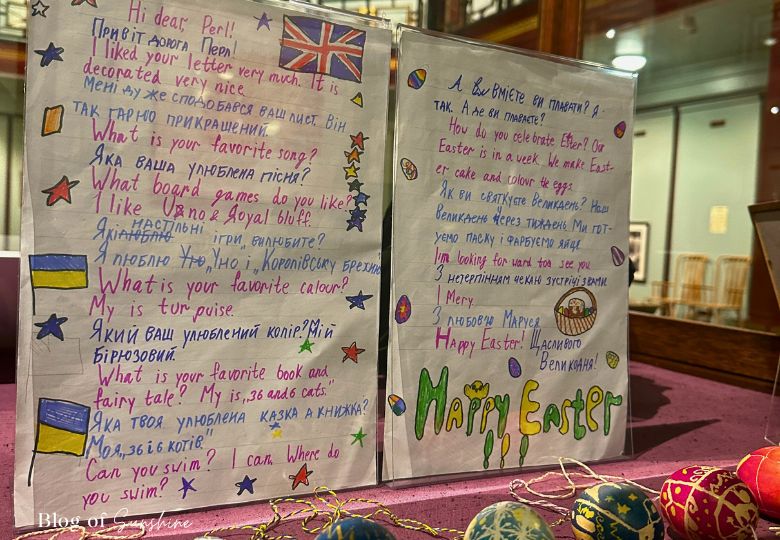 Hi dear, Perl!
Привіт дорога Перл!
I liked your letter very much. It is
decorated very nice
Мені дуже сподобався ваш лист. Він
так гарно прикрашений.
What is your favorite song?
Яка ваша улюблена пісня?
What board games do you like?
I like Uno & Royal bluff.
настільні
Які люблю ігри ви любите?
Я люблю Уно „Уно і „Королівську брехню
What is your favorite calour?
My is turpuise.
Який ваш улюблений колір? Мій
бірюзовий.
What is your favorite book and
fairy tale? My is „36 and 6 cats."
Яка твоя улюблена казка а книжка?
Моя „36 і 6 котів."
Can you swim? I can. Where do
you swim?
А ви вмієте ви плавати? Я -
так. А де ви плаваєте?
How do you celebrate Efter? Our
Easter is in a week. We make East-
er cake and colour the eggs.
Як ви святкуєте Великдень? Наш
Великдень через тиждень Ми гот-
уємо паску і фарбуємо яйце
I'm looking for ward too see you
З нетерпінням чекаю зустрічі з вами.
I Mery.
З любов'ю Маруся
Happy Easter! Щасливого
Великодня!
Happy Easter
!!!
Blog of Sunshine